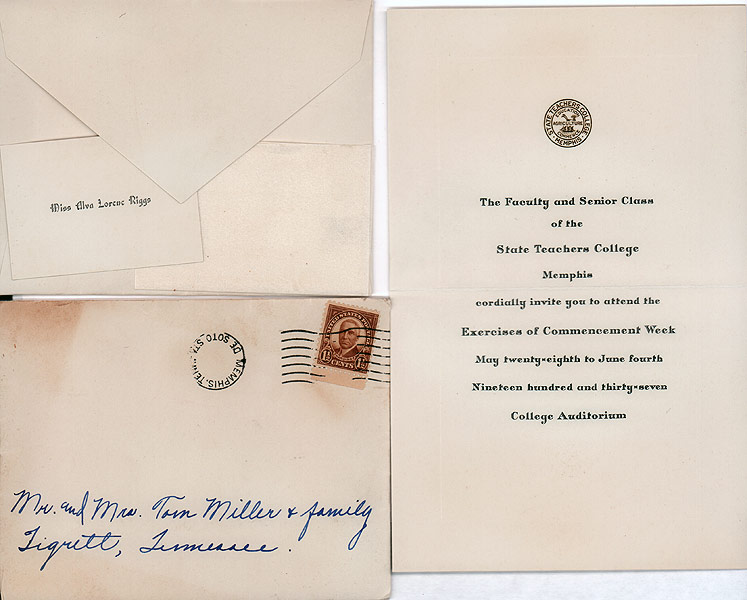 Miss Alva Lorene Riggs
MEMPHIS, TEN
DE SOTO STA.
UNITED STATES POSTAGE
1½ CENTS 1½
Mr. and Mrs. Tom Miller & family
Tigrett, Tennessee.
STATE TEACHERS COLLEGE
EDUCATION
AGRICULTURE
COMMERCE
MEMPHIS
The Faculty and Senior Class
of the
State Teachers College
Memphis
cordially invite you to attend the
Exercises of Commencement Week
May twenty-eighth to June fourth
Nineteen hundred and thirty-seven
College Auditorium